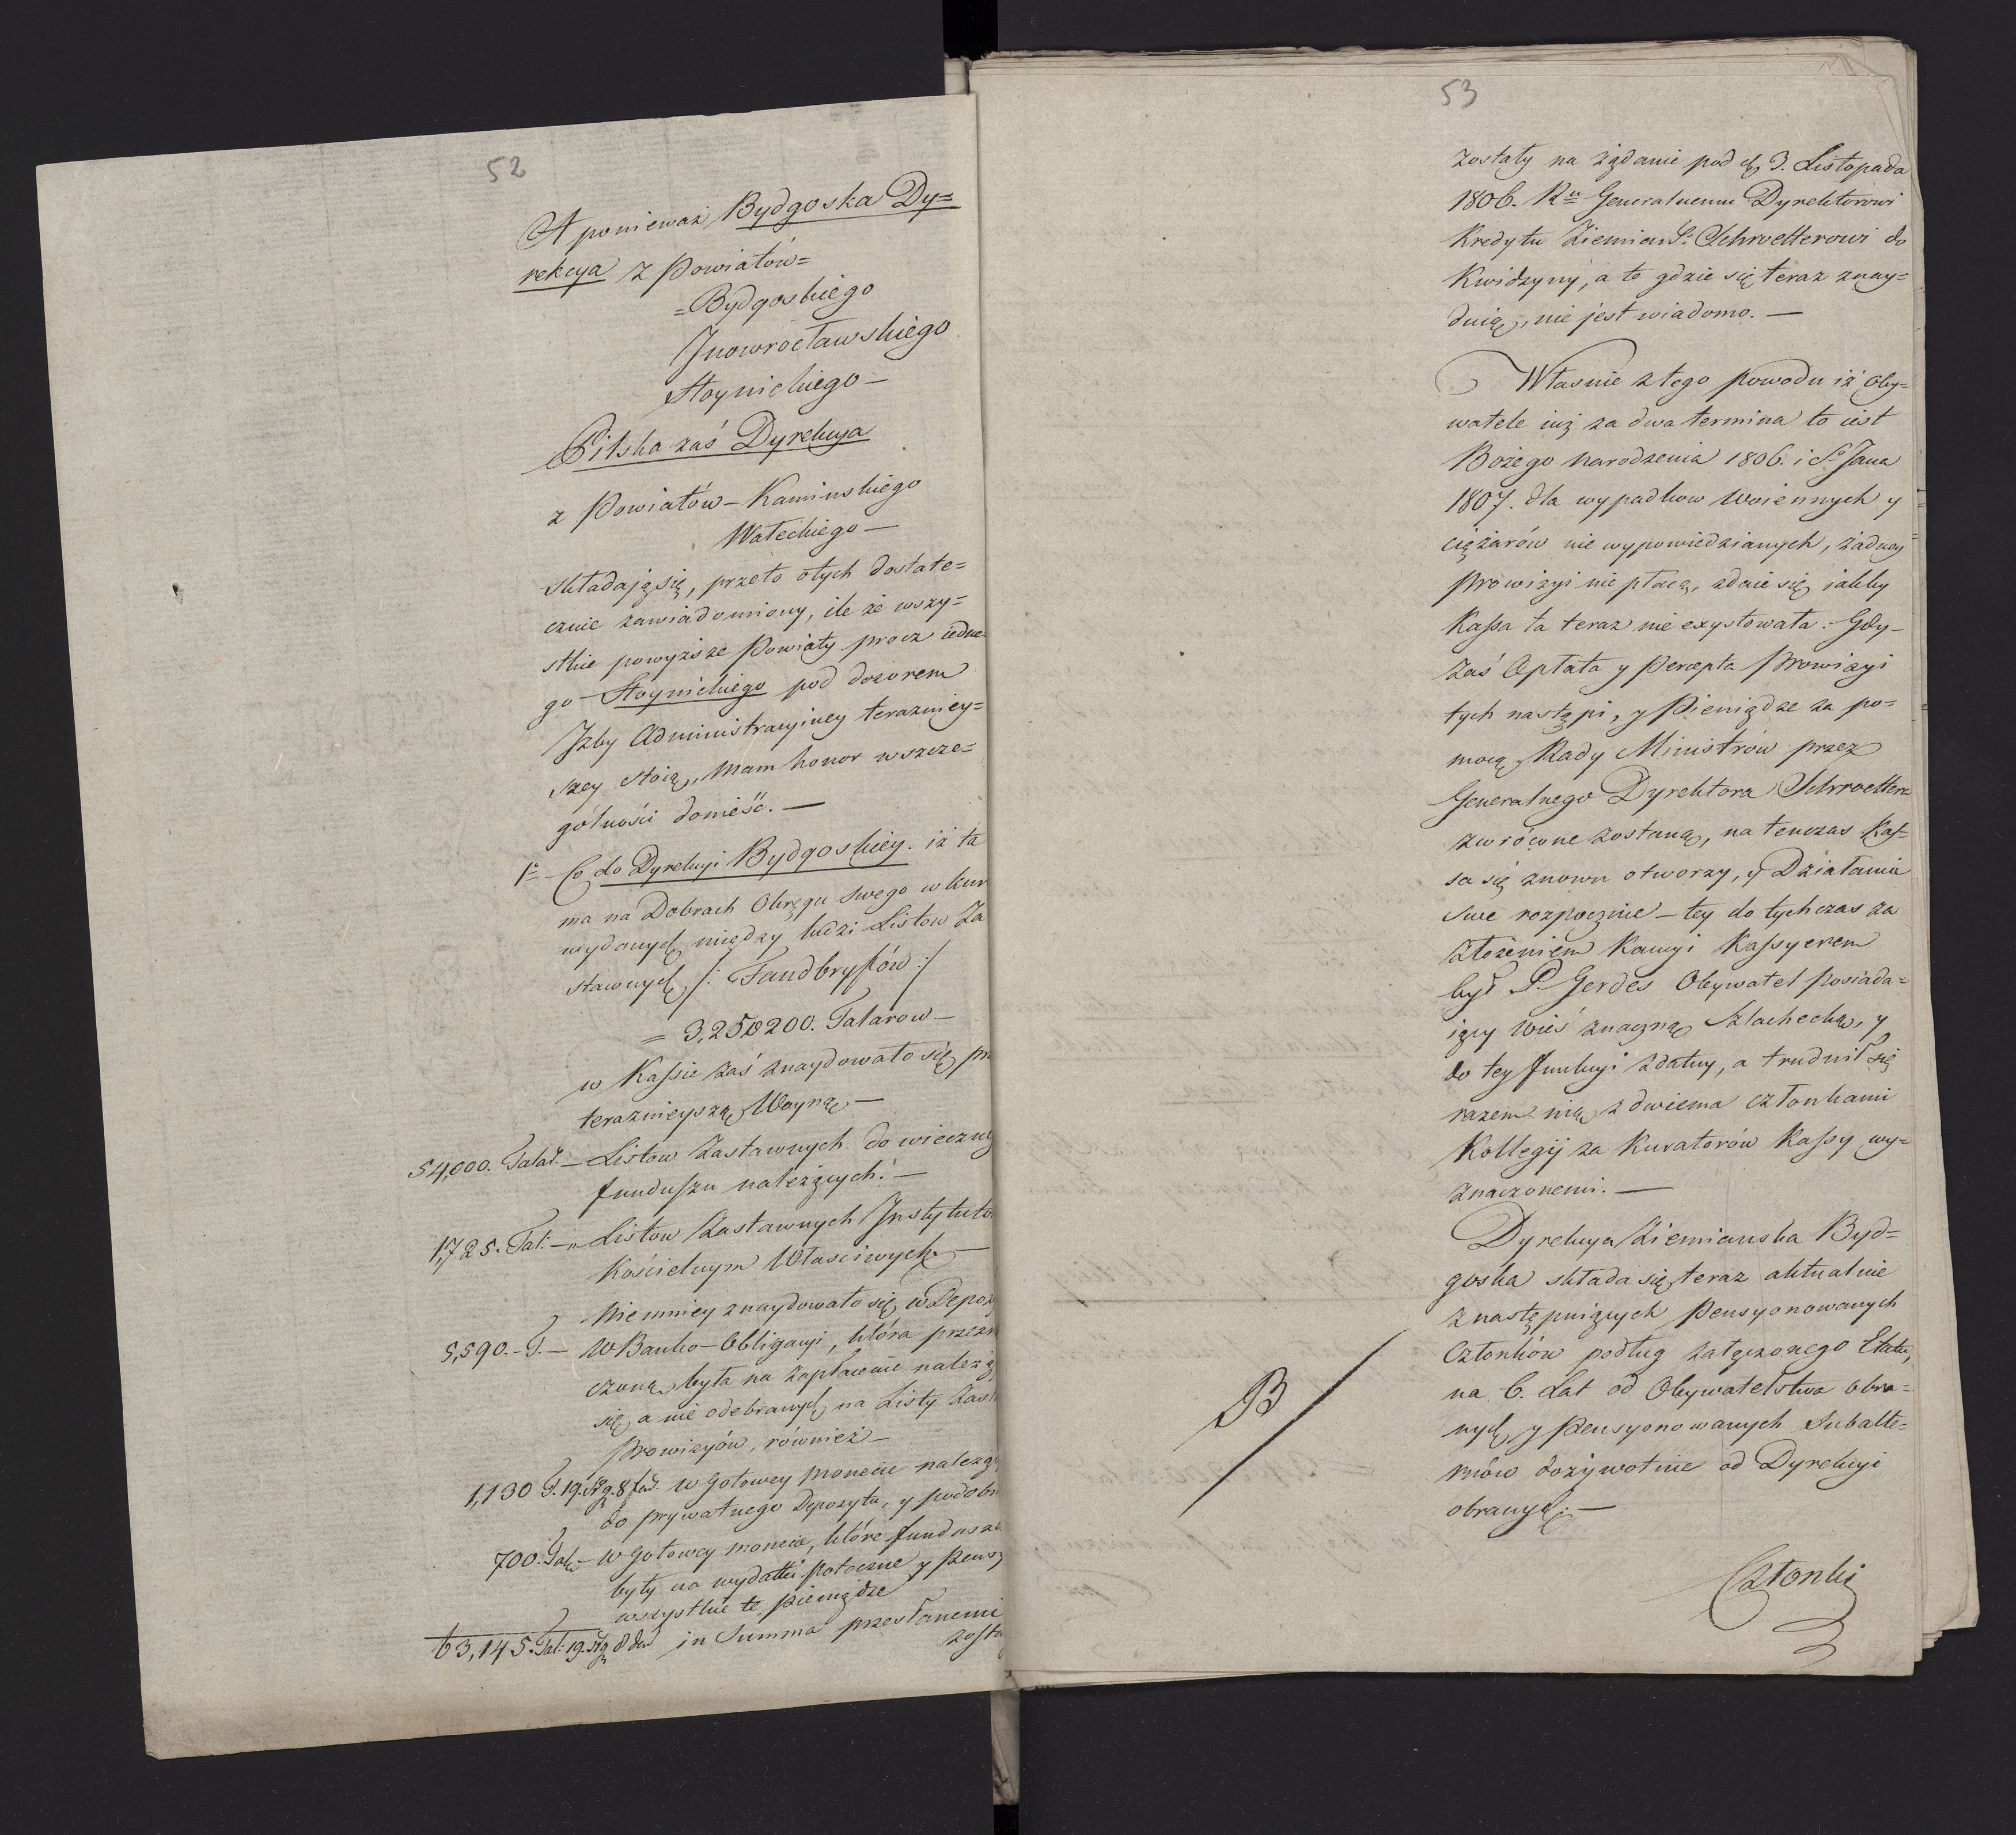 52
A ponieważ Bydgoska Dy=
rekcya z Powiatów=
=Bydgoskiego
Jnowrocławskiego
Stoynickiego—
Pilska zaś Dyrekcya
z Powiatów—Kaminskiego
Wałeckiego—
składają się, przeto o tych dostate=
cznie zawiadomiony, ile że wszy=
stkie powyższe Powiaty procz iedne=
go—Stoynickiego pod dozorem
Jzby Administracyiney teraźniey=
szey stoią, mam honor wszcze=
gólności donieść.—
1o Co do Dyrekcyi Bydgoskiey. iż ta
ma na Dobrach Okręgu swego w kur
wydanych między ludzi Listow Za
stawnych /: Fandbryfów :/
= 3,250200. Talarow—
w Kassie zaś znaydowało się prz
teraznieyszą Woyną—
54,000. Talar.— Listow Zastawnych do wieczneg
funduszu należących.—
1,725. Tal:—„ Listow Zastawnych Jnstytuto
Kościelnym Własciwych—
Niemniey znaydowało się w Depoz
5,590.—T.— W Banko—Obligacyi, która przezn
czoną była na zapłacenie należą
się a nie odebranych na Listy Zast
Prowizyów, również—
1,130 T. 19. sgr. 8 fen. w gotowey monecie należą
do prywatnego Depozytu, y podobn
700. Tal.— w gotowey monecie, które fundusze
były na wydatki potoczne y Pensy
wszystkie te pieniądze
63,145. Tal: 19. sgr 8 den in Summa przesłanemi
zosta
53
zostały na żądanie pod d. 3. Listopada
1806. Ru Generalnemu Dyrektorowi
Kredytu Ziemians. Schroetterowi do
Kwidzyny, a te gdzie się teraz znay=
duią, nie jest wiadomo.—
Własnie z tego powodu iż Oby=
watele iuż za dwa termina to iest
Bożego Narodzenia 1806. i So Jana
1807. dla wypadkow Woiennych y
ciężarów nie wypowiedzianych, żadney
Prowizyi nie płacą, zdaie się iakby
Kassa ta teraz nie exystowała.—Gdy—
zaś Opłata y Percepta Prowizyi
tych nastąpi, y Pieniądze za po=
mocą Rady Ministrów przez
Generalnego Dyrektora Schroettera
zwrócone zostaną, na tenczas Kas=
sa się znowu otworzy, y Działania
swe rozpocznie—tey do tychczas za
złożeniem Kaucyi Kassyerem
był P. Gerdes Obywatel posiada=
iący wieś znaczną Szlachecką, y
do tey funkcyi zdatny, a trudnił się
razem nią z dwiema członkami
Kollegij za Kuratorów Kassy wy=
znaczonemi.—
Dyrekcya Ziemianska Byd=
goska składa się teraz aktualnie
z następuiących Pensyonowanych
Członków podług załączonego Etatu,
B
na 6. Lat od Obywatelstwa obra=
nych y Pensyonowanych Subalte=
rnów dożywotnie od Dyrekcyi
obranych.—
Członki